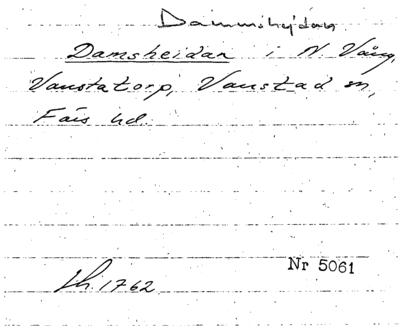 Dammshejdan
Damsheidan i N. Vång,
Vanstatorp, Vanstad sn,
Färs hd.
Nr 5061
Lh. 1762